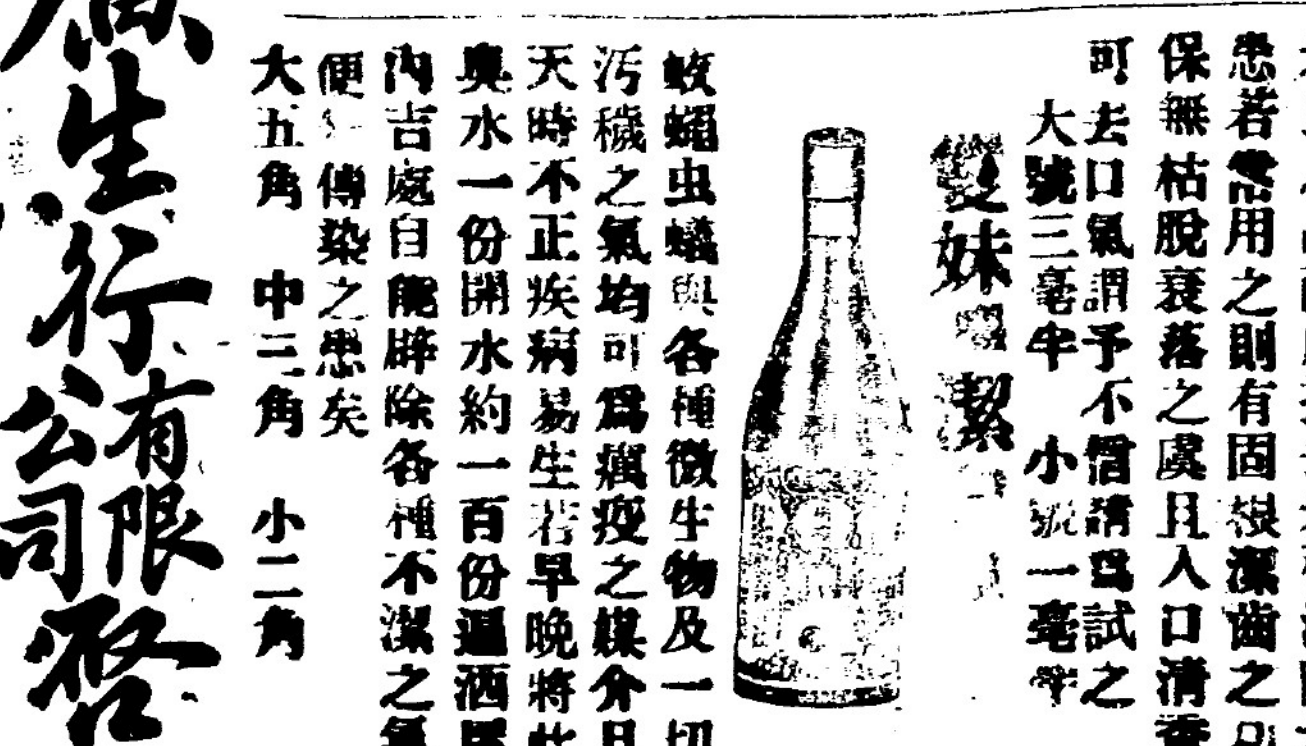 患若常用之則有固根潔齒之
保無枯脫衰落之虞且入口清香
可去口氣謂予不信請爲試之
大號三毫半 小號一毫半
雙妹 潔
蚊蠅虫蟻與各種微生物及一切
污穢之氣均可爲癘疫之媒介且
天時不正疾病易生若早晚將此
與水一份開水約一百份遍洒屋
內吉處自能辟除各種不潔之氣
便 傳染之患矣
大五角 中三角 小二角
生行有限公司啓